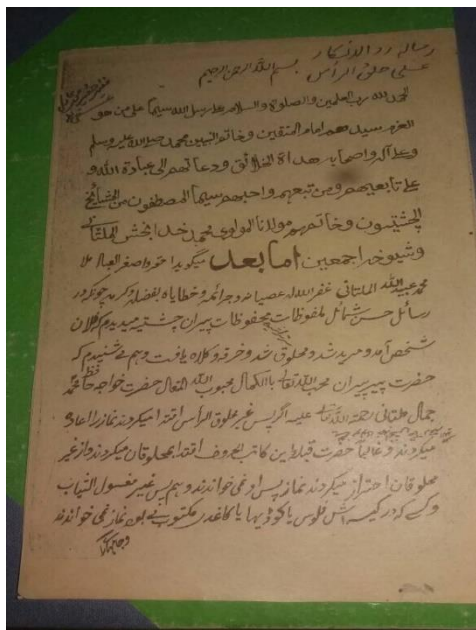 رساله رد الانکار
علی حلق الرأس بسم الله الرحمن الرحیم
الحمد لله رب العلمین والصلوة والسلام علی رسل الله سیما علی من هو
اعزهم سیدهم امام المتقین وخاتم النبیین محمد صلی الله علیه وسلم
وعلی آله واصحابه هداة الخلائق ودعاتهم الی عبادة الله و
علی تابعیهم ومن تبعهم واحبهم سیما المصطفون من المشائخ
الچشتیون وخاتمهم مولانا المولوی محمد خدا بخش الملتانی
وشیوخه اجمعین اما بعد میگوید احقر واصغر العباد ملا
محمد عبید الله الملتانی غفر الله له عصیانه وجرائمه وخطایاه بفضله وکرمه چونکه در
رسائل شمائل ملفوظات ومحفوظات پیران چشتیه میدیدم که فلان
شخص آمد و مرید شد و محلوق شد و خرقه و کلاه یافت و هم می شنیدم که
حضرت پیر پیران محب الله تعالی با الکمال محبوب الله المتعال حضرت خواجه حافظ محمد
جمال ملتانی رحمة الله تعالی علیه اگر پس غیر محلوق الرأس اقتدا میکردند نماز را اعاده
میکردند و غالبا حضرت قبله این کاتب الحروف اقتدا بمحلوقان میکردند و از غیر
محلوقان احتراز میکردند نماز پس او نمی خواندند و هم پس غیر مغسول الثیاب
و کسے که در کیسه اش فلوس یا کوڈیها یا کاغذ مکتوب بے بود نماز نمی خواندند